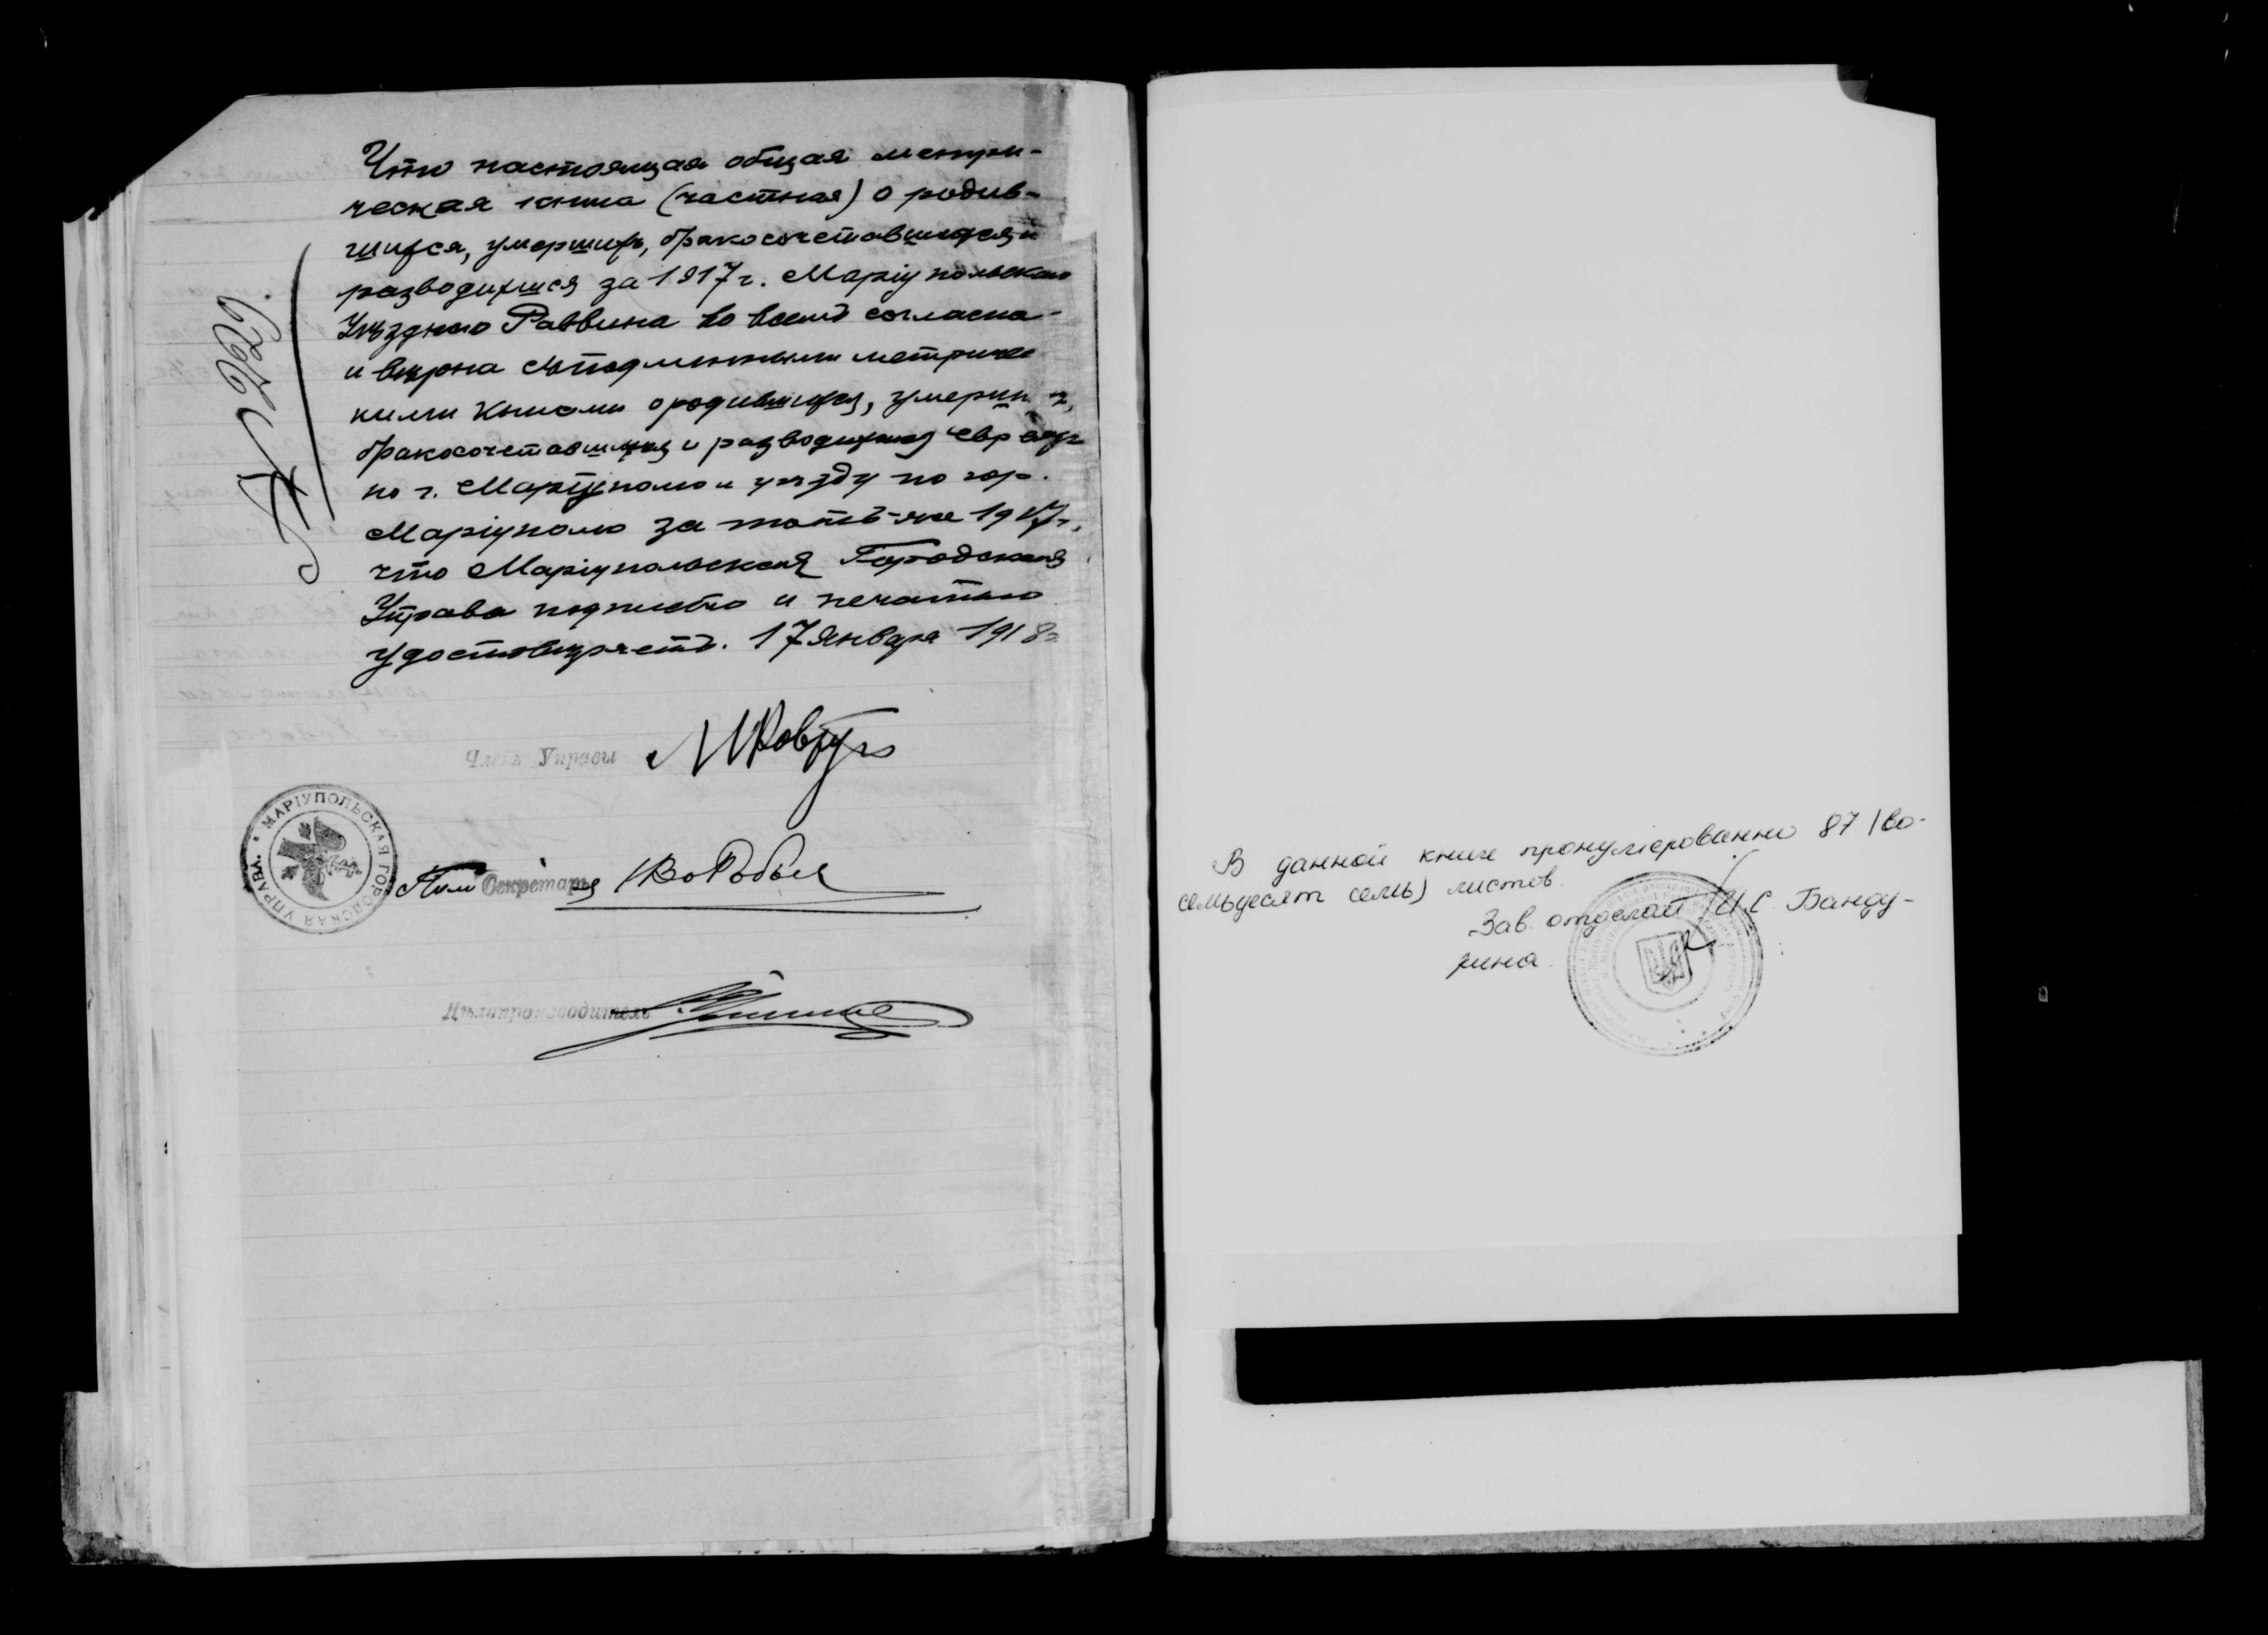 Что настоящая общая метри-
ческая книга (частная) о родив-
шихся, умершихъ, бракосочетавшихся и
разводихшся за 1917 г. Маріупольскаго
Уѣзднаго Раввина во всемъ согласна
и вѣрна съ подлинными метричес
кими книгами о родившихся, умерших,
бракосочетавшихся и разводихшся евреях
по г. Маріуполю и уѣзду по гор.
Маріуполю за тотъ-же 1917 г.,
что Маріупольская Городская
Управа подписью и печатью
удостовѣряетъ. 17 Января 1918 г
№ 299
Членъ Управы
МАРІУПОЛЬСКАЯ ГОРОДСКАЯ УПРАВА.
Пом Секретаря
Дѣлопроизводитель
В данной книге пронумерованно 87 (во-
семьдесят семь) листов.
Зав. отделом И.С. Банду-
рина